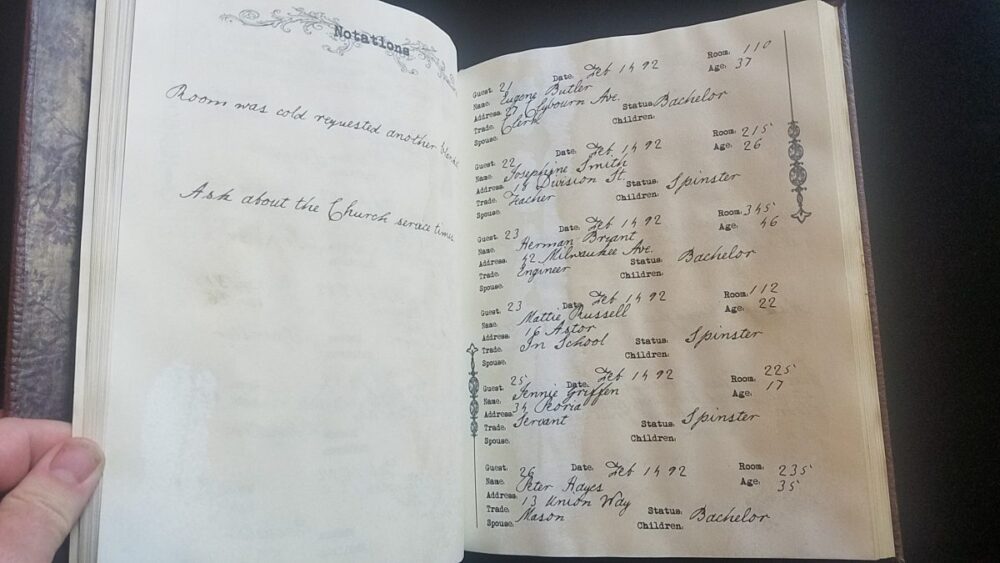 Notations
Room was cold requested another
Ask about the Church service times
Guest. 21 Date. Feb 14 92 Room. 110
Name. Eugene Butler Age. 37
Address. Clybourn Ave.
Trade. Clerk Status. Bachelor
Spouse. Children.
Guest. 22 Date. Feb. 14 92 Room. 215
Name. Josephine Smith Age. 26
Address. 14 Division St.
Trade. Teacher Status. Spinster
Spouse. Children.
Guest. 23 Date. Feb 14 92 Room. 345
Name. Herman Bryant Age. 46
Address. 42 Milwaukee Ave.
Trade. Engineer Status. Bachelor
Spouse. Children.
Guest. 23 Date. Feb 14 92 Room. 112
Name. Mattie Russell Age. 22
Address. 16 Astor
Trade. In School Status. Spinster
Spouse. Children.
Guest. 25 Date. Feb 14 92 Room. 225
Name. Jennie Griffen Age. 17
Address. 34 Peoria
Trade. Servant Status. Spinster
Spouse. Children.
Guest. 26 Date. Feb 14 92 Room. 235
Name. Peter Hayes Age. 35
Address. 13 Union Way
Trade. Mason Status. Bachelor
Spouse. Children.